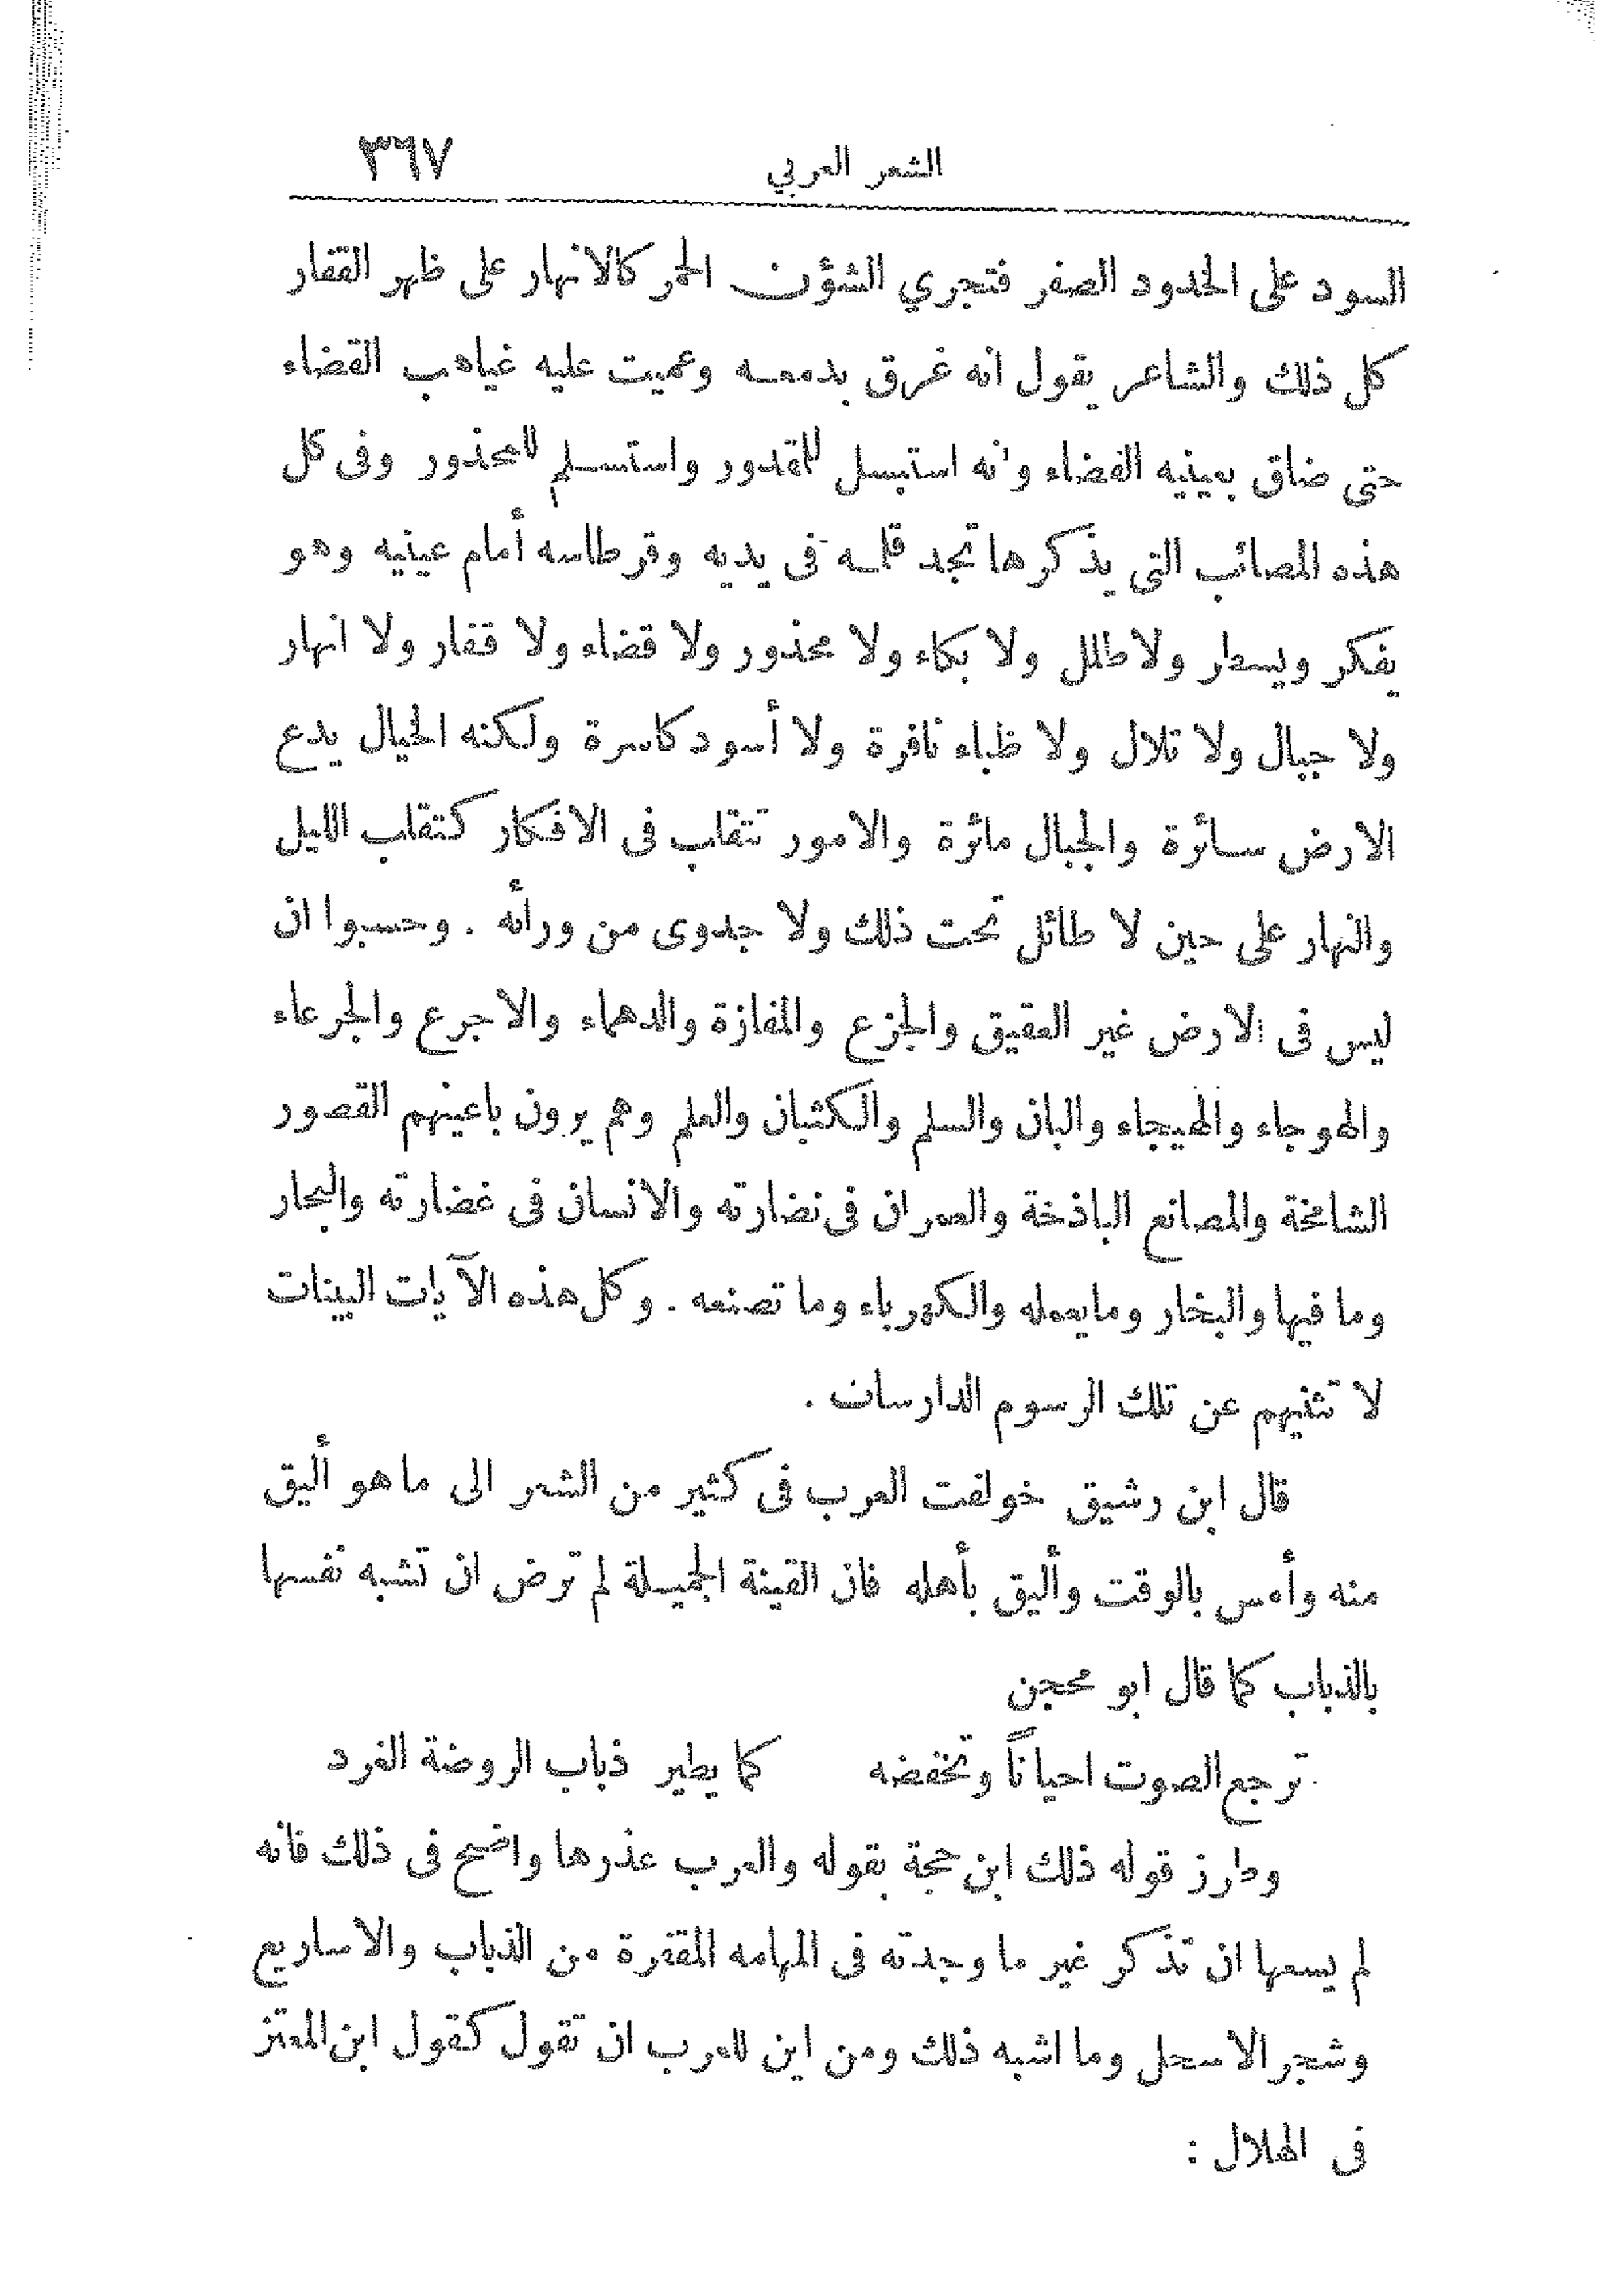 الشعر العربي ٣٦٧
السود على الخدود الصفر فتجري الشؤن الحمر كالانهار على ظهر القفار
كل ذلك والشاعر يقول انه غرق بدمعه وعميت عليه غياهب القضاء
حتى ضاق بعينيه الفضاء وانه استبسل للمقدور واستسلم للمحذور وفى كل
هذه المصائب التى يذكرها تجد قلمه فى يديه وقرطاسه أمام عينيه وهو
يفكر ويسطر ولا طلل ولا بكاء ولا محذور ولا قضاء ولا قفار ولا انهار
ولا جبال ولا تلال ولا ظباء نافرة ولا أسود كاسرة ولكنه الخيال يدع
الارض سائرة والجبال مائرة والامور تتقلب فى الافكار كتقلب الليل
والنهار على حين لا طائل تحت ذلك ولا جدوى من ورأئه . وحسبوا ان
ليس فى الارض غير العقيق والجزع والمفازة والدهماء والاجرع والجرعاء
والهوجاء والهيجاء والبان والسلم والكثبان والعلم وهم يرون باعينهم القصور
الشامخة والمصانع الباذخة والعمران فى نضارته والانسان فى غضارته والبحار
وما فيها والبخار وما يعمله والكهرباء وما تصنعه . وكل هذه الآيات البينات
لا تثنيهم عن تلك الرسوم الدارسات .
قال ابن رشيق خولفت العرب فى كثير من الشعر الى ما هو أليق
منه وأمس بالوقت وأليق بأهله فان القينة الجميلة لم ترض ان تشبه نفسها
بالذباب كما قال ابو محجن
ترجع الصوت احياناً وتخفضه كما يطير ذباب الروضة الغرد
وطرز قوله ذلك ابن حجة بقوله والعرب عذرها واضح فى ذلك فانه
لم يسعها ان تذكر غير ما وجدته فى المهامه المقفرة من الذباب والاساريع
وشجر الاسحل وما اشبه ذلك ومن اين للعرب ان تقول كقول ابن المعتز
فى الهلال :